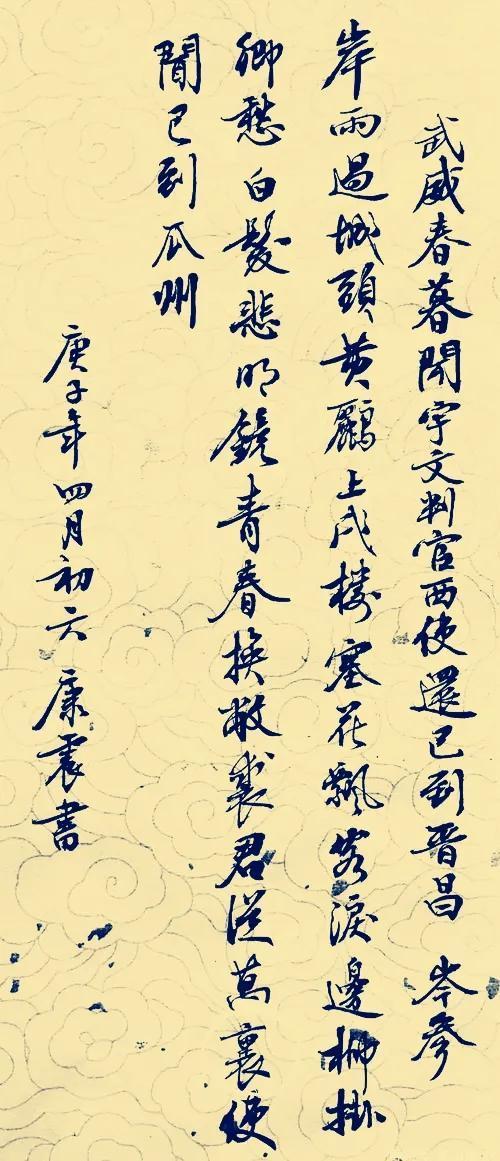 武威春暮聞宇文判官西使還已到晋昌 岑參
岸雨過城頭黄鸝上戍樓塞花飄客淚邊柳掛
鄉愁白髮悲明鏡青春換敝裘君從萬裏使
聞已到瓜州
庚子年四月初六 康震書